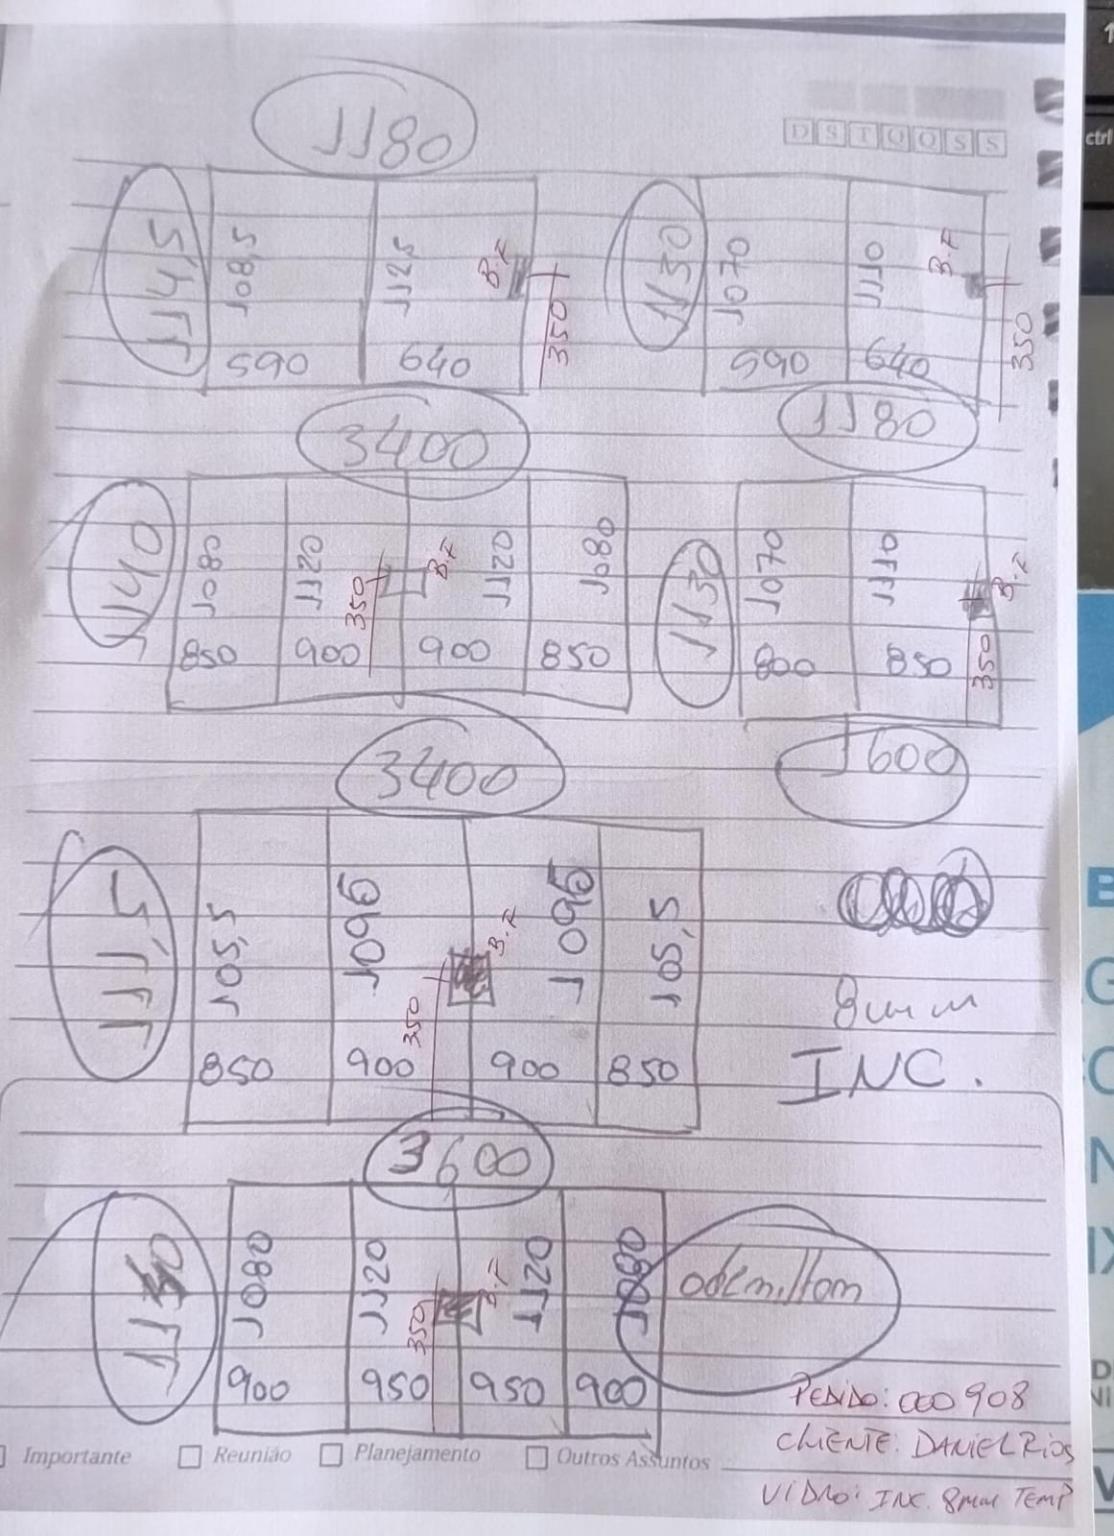 1180
D S T Q Q S S
114,5
108,5
112,5
B.F
350
590
640
1130
1070
1110
B.F
350
590
640
1180
3400
1140
1080
1120
350
B.F
1120
1080
850
900
900
850
1130
1070
1110
B.F
350
800
850
1600
3400
111,5
105,5
1095
350
B.F
1095
105,5
850
900
900
850
8mm
INC.
3600
1080
1120
350
B.F
1120
1080
900
950
950
900
odemiltom
PEDIDO: 000908
CLIENTE: DANIEL RIOS
VIDRO: INC. 8mm TEMP
Importante
Reunião
Planejamento
Outros Assuntos
ctrl